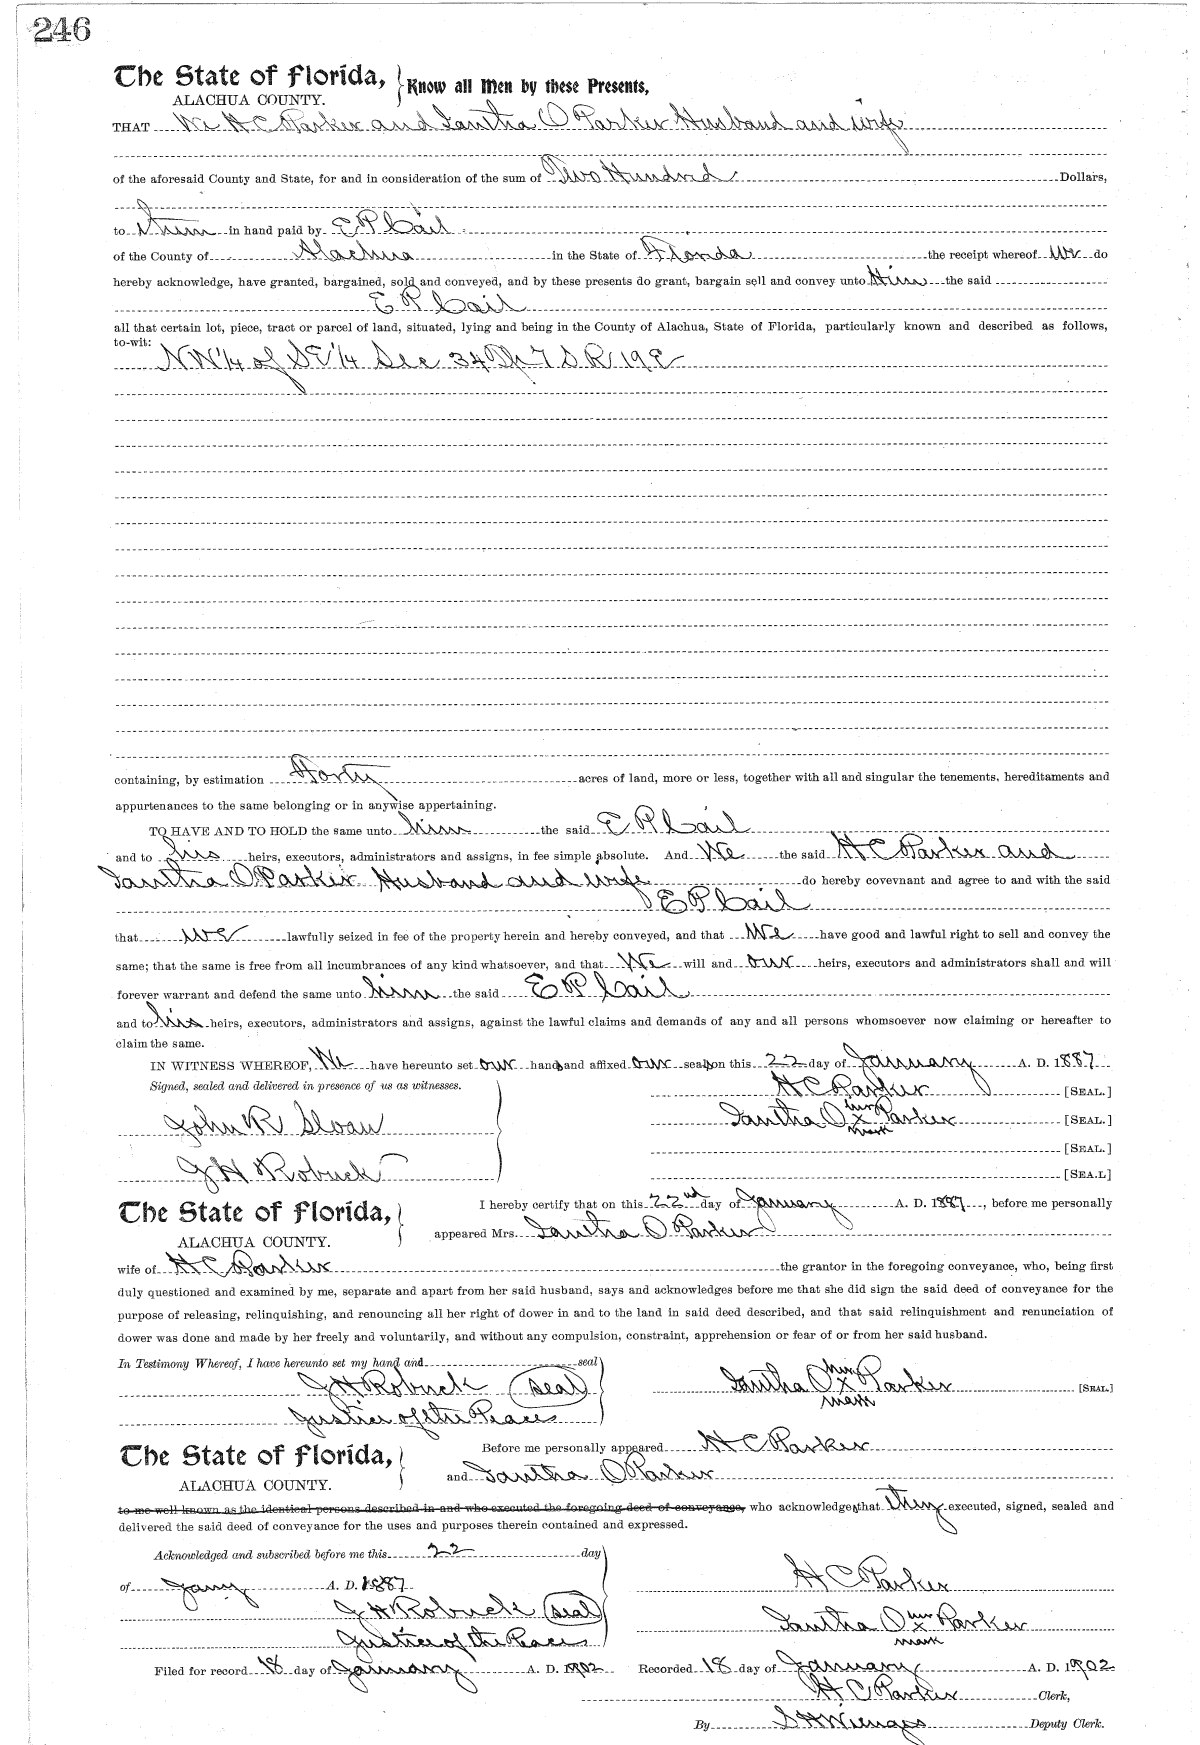 246
The State of Florida, } Know all Men by these Presents,
ALACHUA COUNTY.
THAT We H C Parker and Iantha O Parker Husband and wife
of the aforesaid County and State, for and in consideration of the sum of Two Hundred Dollars,
to them in hand paid by E P Cail
of the County of Alachua in the State of Florida the receipt whereof we do
hereby acknowledge, have granted, bargained, sold and conveyed, and by these presents do grant, bargain sell and convey unto Him the said
E P Cail
all that certain lot, piece, tract or parcel of land, situated, lying and being in the County of Alachua, State of Florida, particularly known and described as follows,
to-wit:
NW 1/4 of SE 1/4 Sec 34 Tp 7 S R 19 E
containing, by estimation Forty acres of land, more or less, together with all and singular the tenements, hereditaments and
appurtenances to the same belonging or in anywise appertaining.
TO HAVE AND TO HOLD the same unto him the said E P Cail
and to his heirs, executors, administrators and assigns, in fee simple absolute. And We the said H C Parker and
Iantha O Parker Husband and wife do hereby covevnant and agree to and with the said
E P Cail
that we lawfully seized in fee of the property herein and hereby conveyed, and that We have good and lawful right to sell and convey the
same; that the same is free from all incumbrances of any kind whatsoever, and that We will and our heirs, executors and administrators shall and will
forever warrant and defend the same unto him the said E P Cail
and to his heirs, executors, administrators and assigns, against the lawful claims and demands of any and all persons whomsoever now claiming or hereafter to
claim the same.
IN WITNESS WHEREOF, We have hereunto set our hands and affixed our seals on this 22 day of January A. D. 1887
Signed, sealed and delivered in presence of us as witnesses.
H C Parker [SEAL.]
John R Sloan
Iantha O her x mark Parker [SEAL.]
[SEAL.]
J H Robuck
[SEA.L]
The State of Florida, } I hereby certify that on this 22nd day of January A. D. 1887, before me personally
ALACHUA COUNTY. appeared Mrs. Iantha O Parker
wife of H C Parker the grantor in the foregoing conveyance, who, being first
duly questioned and examined by me, separate and apart from her said husband, says and acknowledges before me that she did sign the said deed of conveyance for the
purpose of releasing, relinquishing, and renouncing all her right of dower in and to the land in said deed described, and that said relinquishment and renunciation of
dower was done and made by her freely and voluntarily, and without any compulsion, constraint, apprehension or fear of or from her said husband.
In Testimony Whereof, I have hereunto set my hand and seal
J H Robuck (seal) Iantha O her x mark Parker [SEAL.]
Justice of the Peace
The State of Florida, } Before me personally appeared H C Parker
ALACHUA COUNTY. and Iantha O Parker
to me well known as the identical persons described in and who executed the foregoing deed of conveyance, who acknowledged that they executed, signed, sealed and
delivered the said deed of conveyance for the uses and purposes therein contained and expressed.
Acknowledged and subscribed before me this 22 day
of Jany A. D. 1887
H C Parker
J H Robuck (seal)
Iantha O her x mark Parker
Justice of the Peace
Filed for record 18 day of January A. D. 1902 Recorded 18 day of January A. D. 1902
H C Parker Clerk,
By Deputy Clerk.